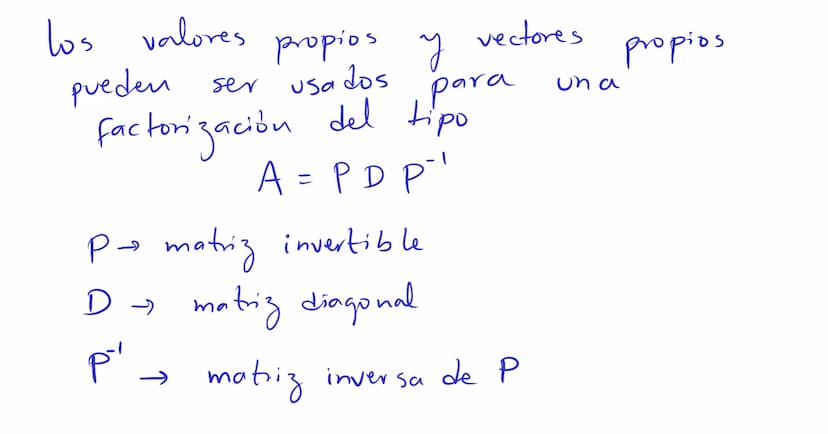 los valores propios y vectores propios
pueden ser usados para una
factorización del tipo
A = P D P⁻¹
P → matriz invertible
D → matriz diagonal
P⁻¹ → matriz inversa de P